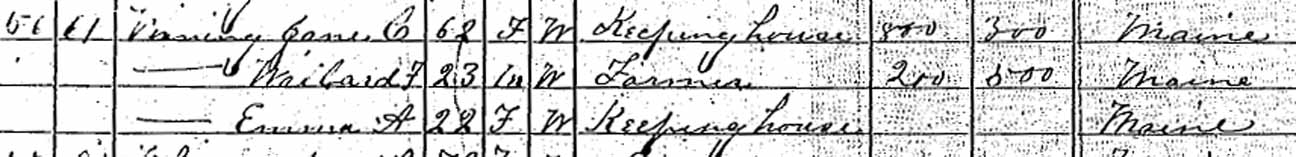 56 61 Vining Jane C 62 F W Keeping house 800 300 Maine
—— Wilbard F 23 M W Farmer 200 500 Maine
—— Emma A 22 F W Keeping house Maine